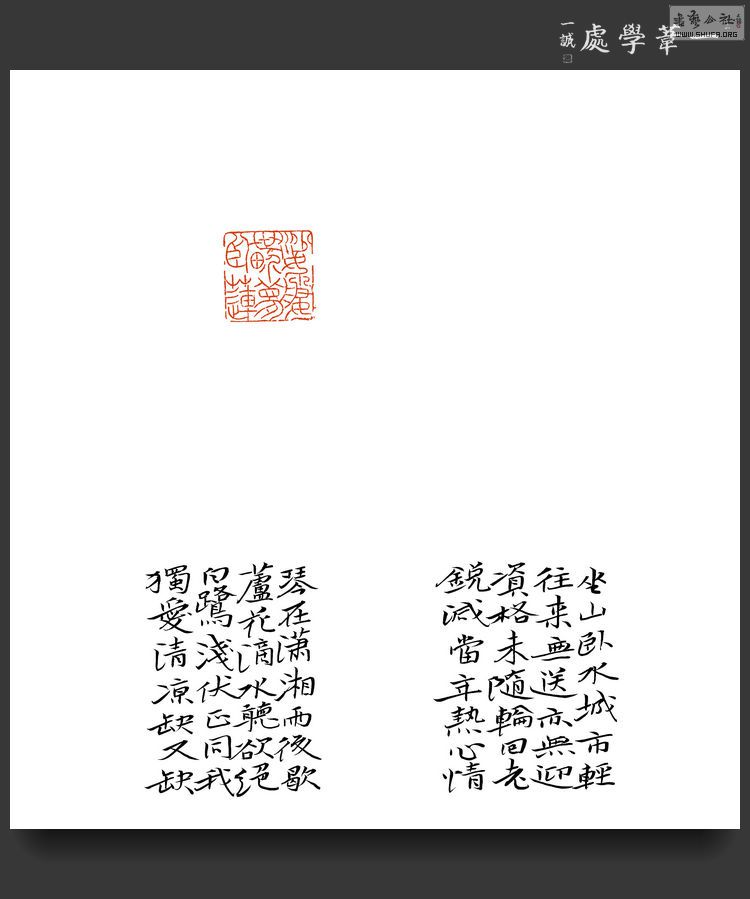 一葦學處
一誠
書藝公社
WWW.SHUFA.ORG
坐山卧水城市輕
往来無送亦無迎
資格未隨輪回老
鋭减當年熱心情
琴在潇湘雨後歇
蘆花滴水聽欲絕
白鷺淺伏正同我
獨愛清凉缺又缺